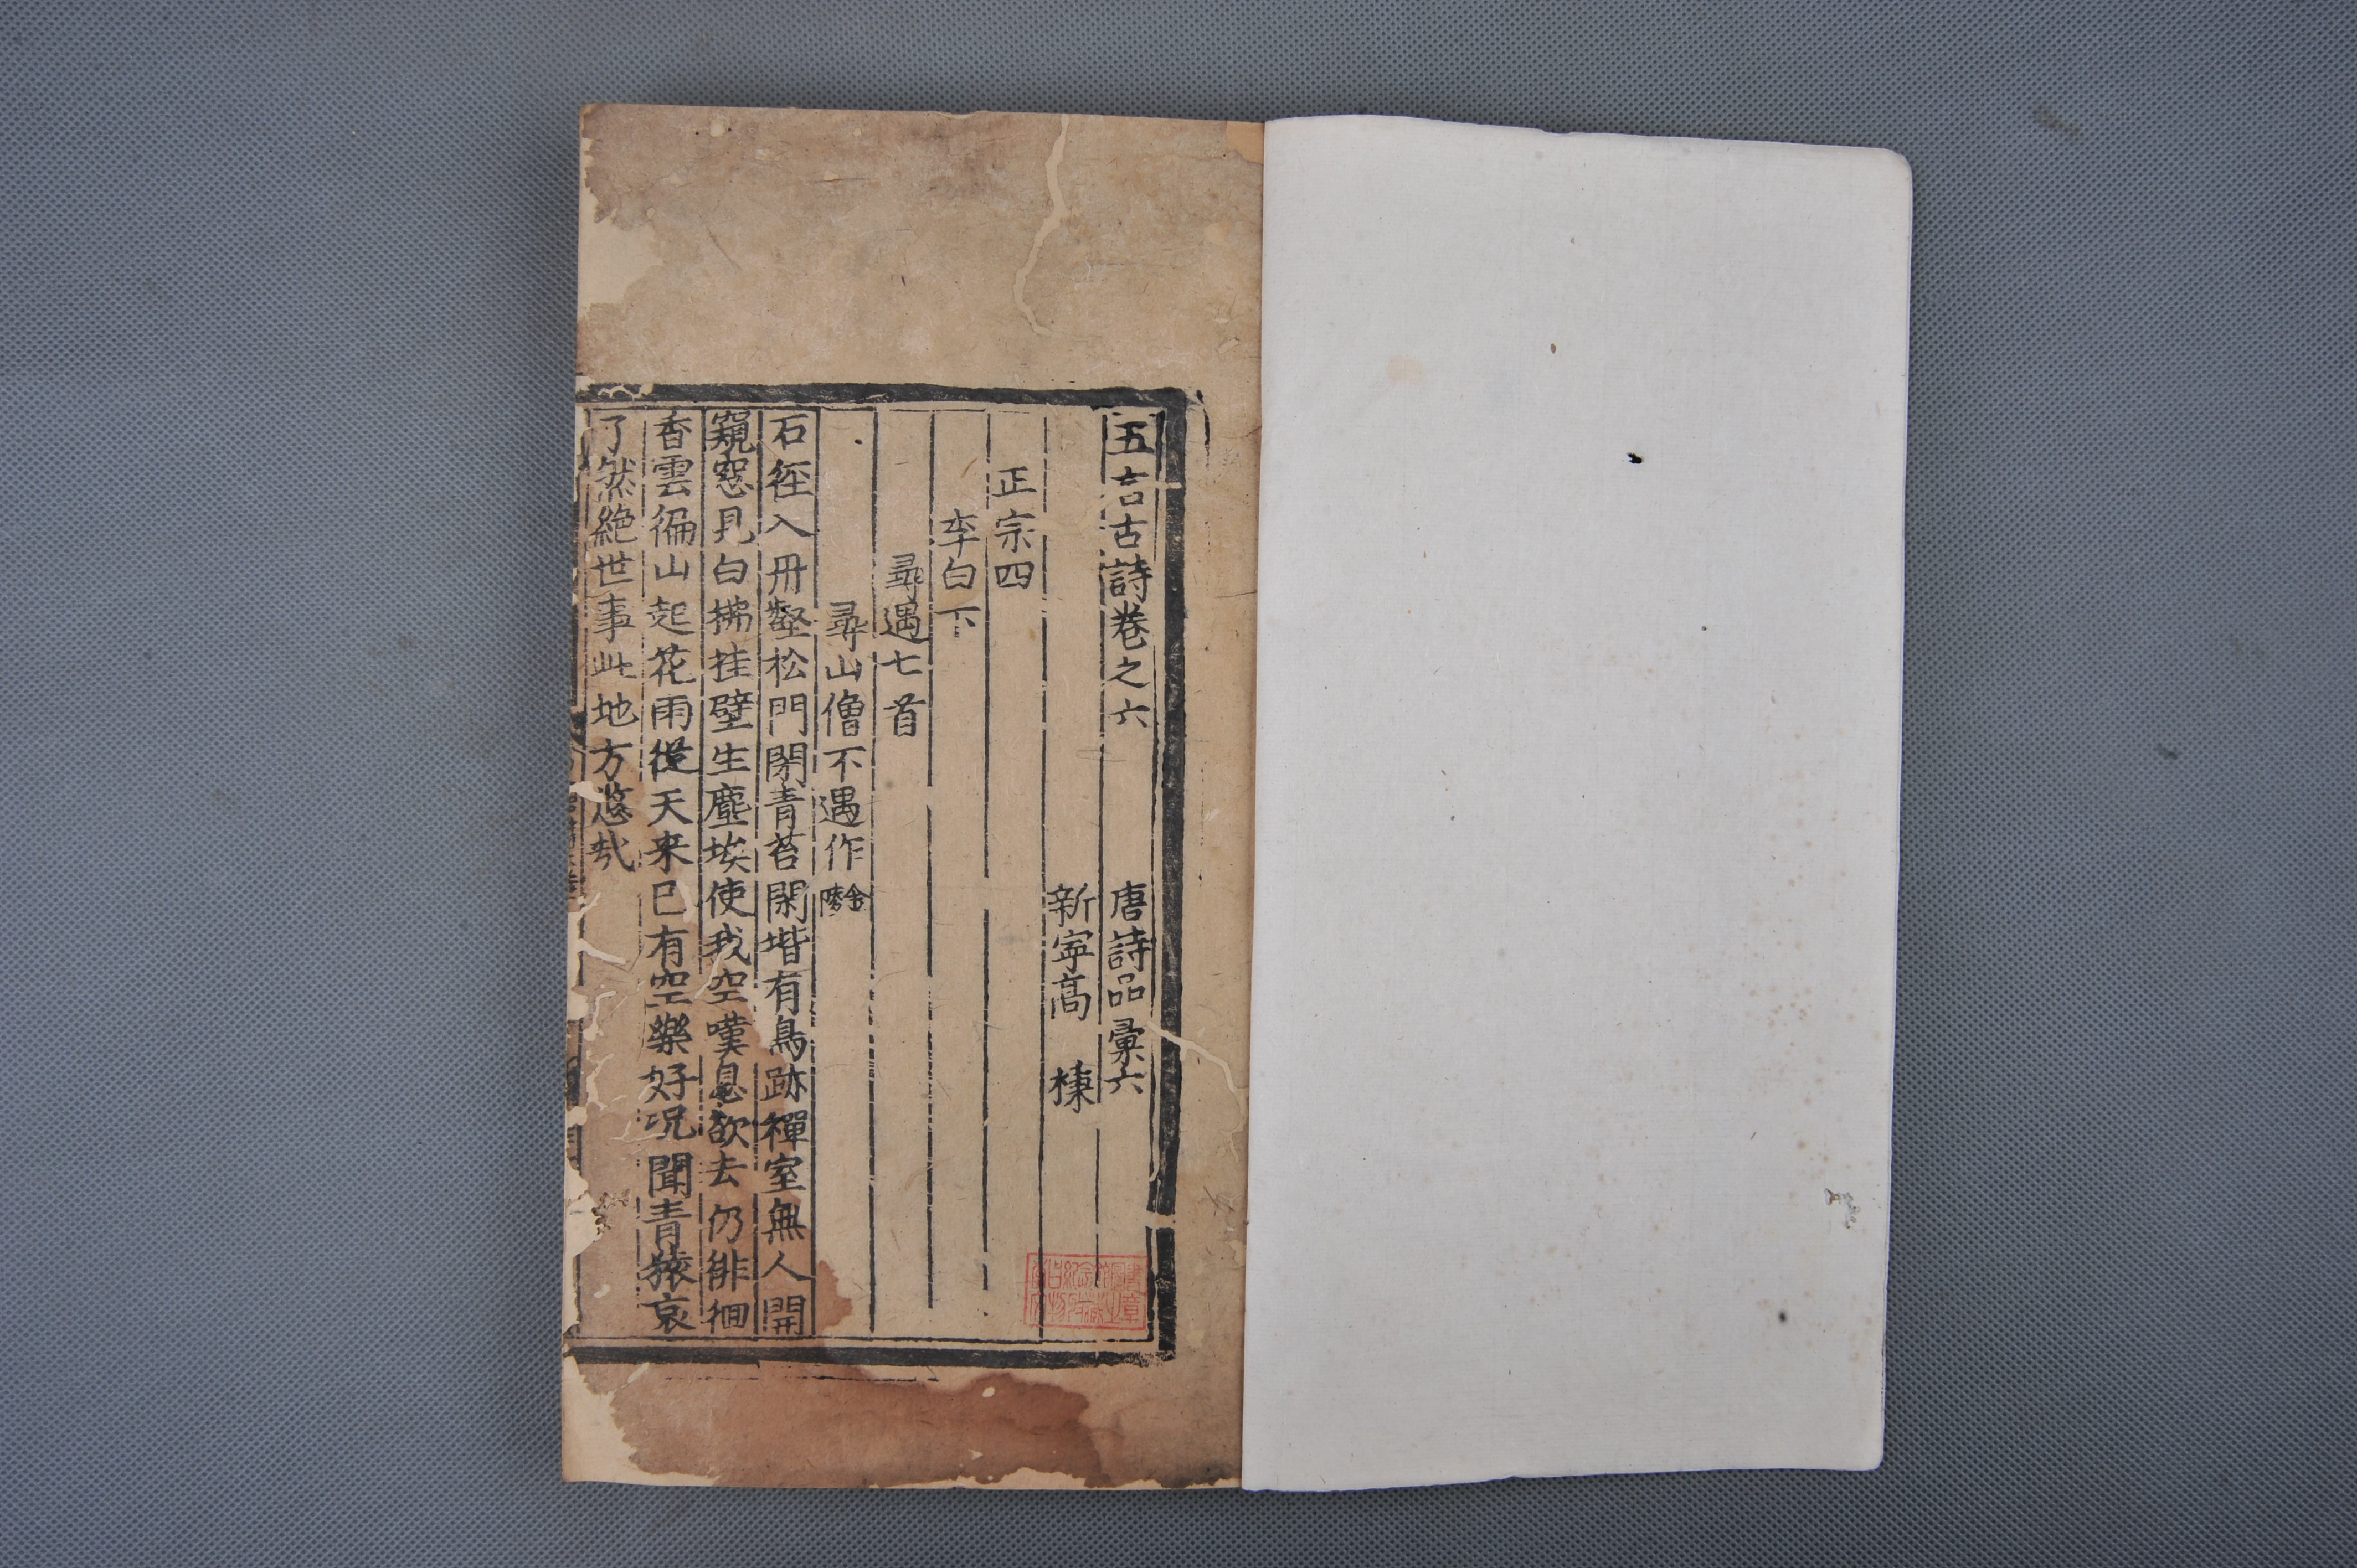 五言古詩卷之六 唐詩品彙六
新寧高 棅
正宗四
李白下
尋遇七首
尋山僧不遇作 金陵
石徑入丹壑松門閉青苔閑堦有鳥跡禪室無人開
窺窓見白拂挂壁生塵埃使我空嘆息欲去仍徘徊
香雲徧山起花雨從天來已有空樂好況聞青猿哀
了然絕世事此地方悠哉